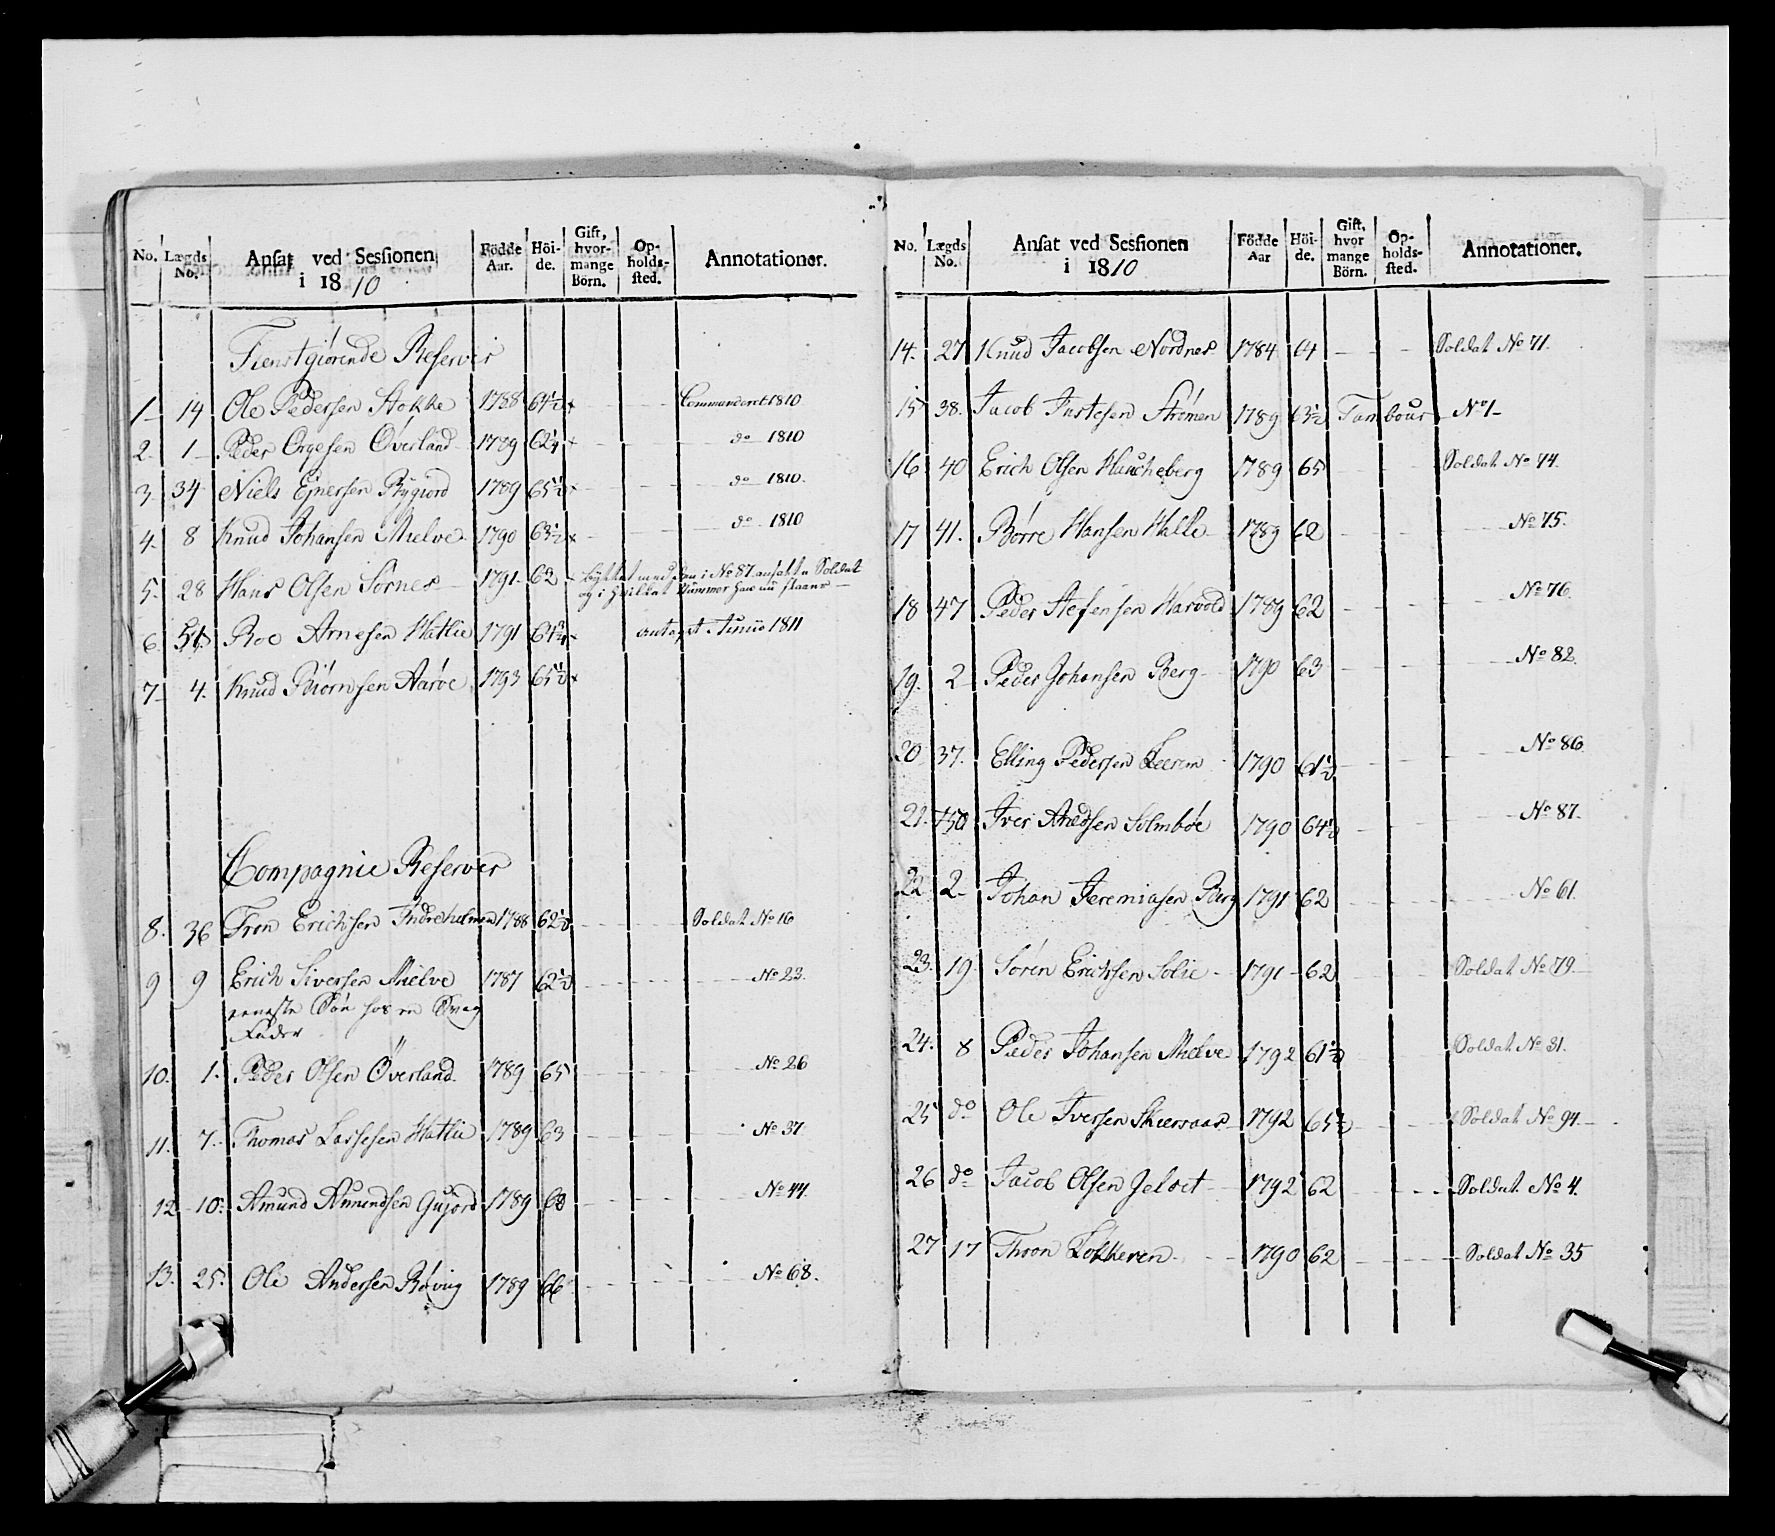 No. Lægds No. Ansat ved Sessionen i 1810 Födde Aar. Höi-de. Gift, hvor-mange Börn. Op-holds-sted. Annotationer.
Tienstgiørende Reserver
1 14 Ole Pedersen Stokke 1788 64½ × Commanderet 1810
2. 1 Peder Ørgesen Øverland 1789 62¼ × do 1810
3. 34 Niels Ejnersen Rygiord 1789 65½ × do 1810.
4. 8 Knud Johansen Mielve 1790 63½ × do 1810
5. 28 Hans Olsen Sørnes 1791 62 byttet med den i No 87 ansatte Soldat
og i hvilket Nummer han nu staaer
6. 51 Roe Arnesen Hatlie 1791 61¾ antaget Anno 1811
7 4. Knud Biørnsen Aarøe 1793 65½ ×
Compagnie Reserver
8. 36 Tron Erichsen Indreholmen 1788 62½ Soldat No 16
9 9 Erich Siversen Mielve 1787 62½ No 23.
eeneste Søn hos en Svag
Fader
10. 1. Peder Olsen Överland 1789 65 No 26
11. 7. Thomas Lassesen Hatlie 1789 63 No 37
12 10. Amund Amundsen Gujord 1789 63 No 44.
13. 25. Ole Andersen Røvig 1789 66 No 68.
No. Lægds No. Ansat ved Sessionen i 1810 Födde Aar Höi-de. Gift, hvor mange Börn. Op-holds-sted. Annotationer.
14. 27 Knud Jacobsen Nordnes 1784 64 Soldat No 71.
15 38. Jacob Justesen Strömen 1789 63½ Tambour No 1
16 40 Erich Olsen Haucheberg 1789 65 Soldat No 74.
17 41. Børre Hansen Halle 1789 62 No 75.
18 47 Peder Stefensen Harvold 1789 62 No 76.
19. 2 Peder Johansen Berg 1790 63 No 82.
20 37. Elling Pedersen Leerem 1790 61½ No 86
21. 50 Iver Andersen Solmbøe 1790 64½ No 87.
22 2 Johan Jeremiasen Berg 1791 62 No 61.
23. 19. Sören Erichsen Solie 1791 62 Soldat No 79.
24. 8 Peder Johansen Mielve 1792 61½ Soldat No 31.
25 do Ole Iversen Skiersaas 1792 65½ Soldat No 94.
26 do Jacob Olsen Jelset 1792 62 Soldat No 4.
27 17 Thron Lokkeren 1790 62 Soldat No 35